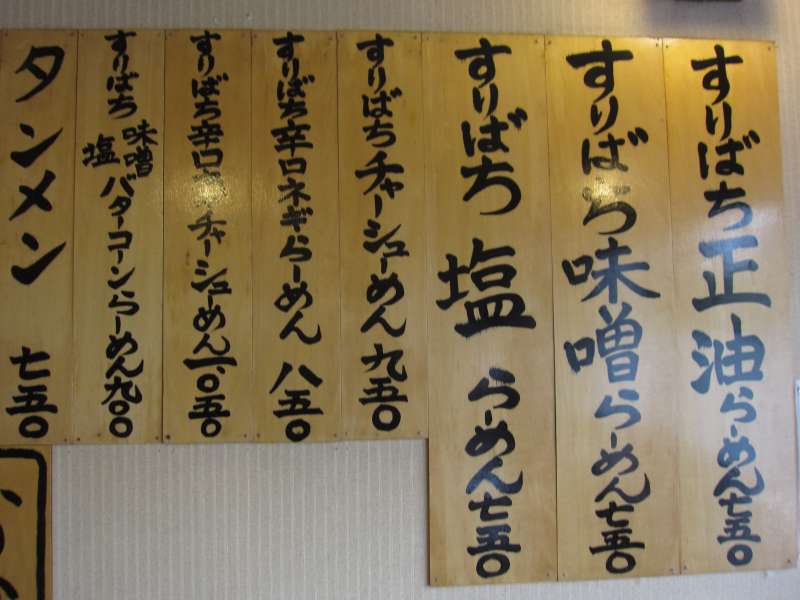 すりばち正油らーめん七五〇
すりばち味噌らーめん七五〇
すりばち塩らーめん七五〇
すりばちチャーシューめん九五〇
すりばち辛口ネギらーめん八五〇
すりばち辛口チャーシューめん一、〇五〇
すりばち味噌塩バターコーンらーめん九〇〇
タンメン 七五〇